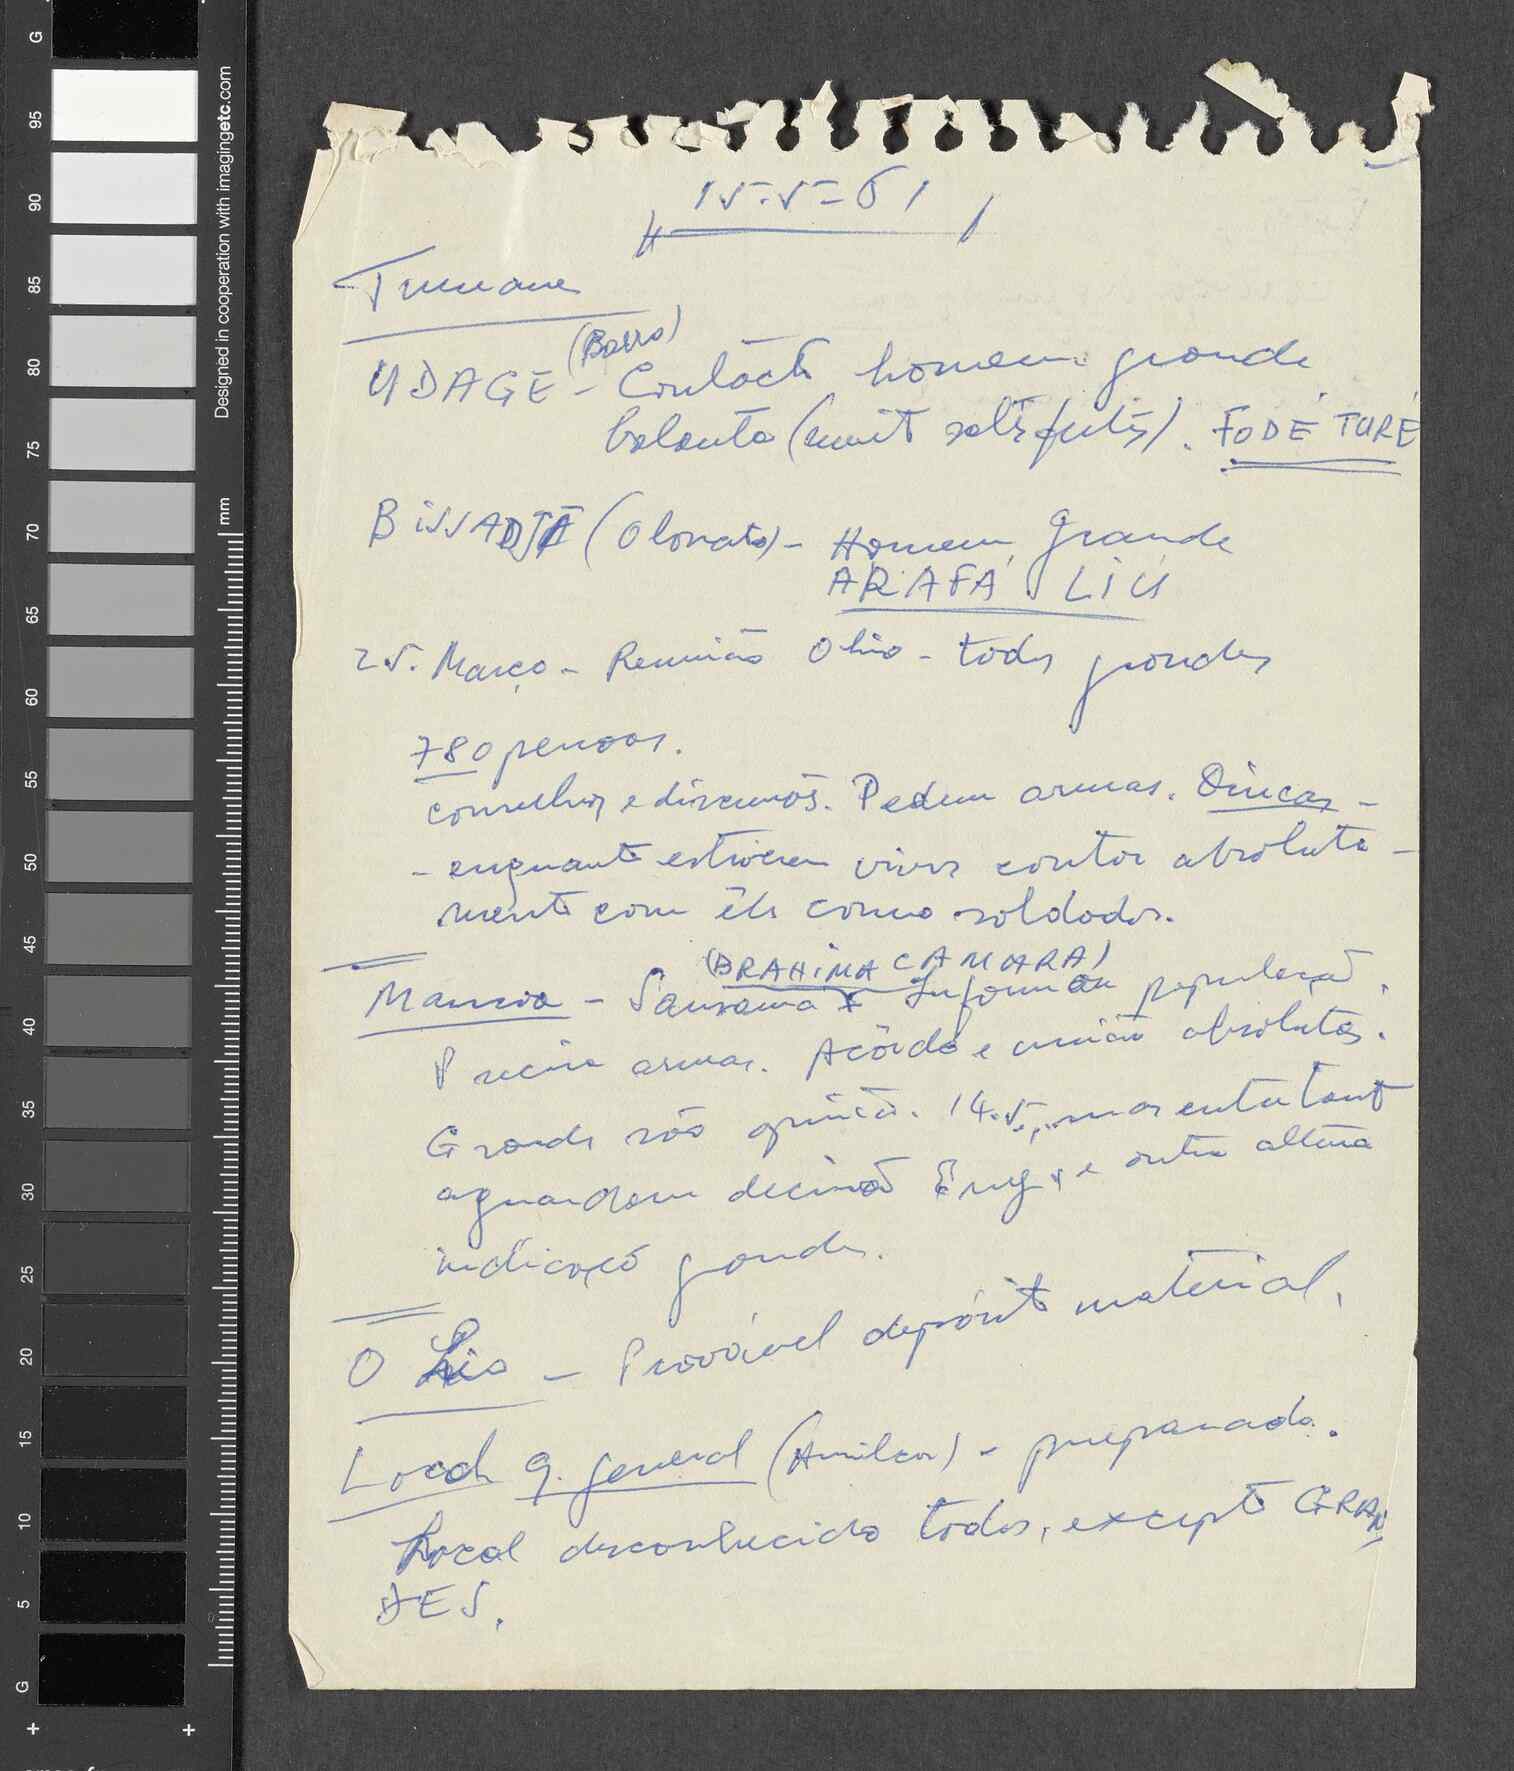 G
95
90
85
80
75
70
65
60
55
50
45
40
35
30
25
20
15
10
5
G
Designed in cooperation with imagingetc.com
mm
15-5-61
(Barro)
UDAGE - Contacto homem grande
balanta (muito satisfeitos). FODÉ TURÉ
BissADJÁ (Olonato) - Homem Grande
ARAFÁ LIU
25. Março - Reunião Olhio - todos grandes
780 pessoas.
conselhos e discussões. Pedem armas.
- enquanto estiverem vivos contar absoluta-
mente com êles como soldados.
(BRAHiMA CAMARA)
Mansoa - Sansama Informou população.
Precisa armas. Acôrdo e união absolutas.
Grande são opinião. 14.5, mas entretanto
aguardam decisão Eng. e outra altura
indicação grandes.
O Lio - Provável depósito material.
Local q. general (Amilcar) - preparado.
Local desconhecido todos, excepto GRAN
DES.